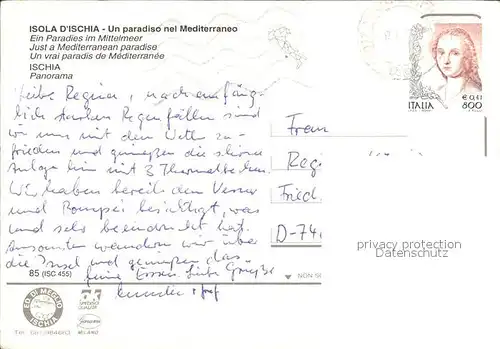 ISOLA D'ISCHIA - Un paradiso nel Mediterraneo
Ein Paradies im Mittelmeer
Just a Mediterranean paradise
Un vrai paradis de Méditerranée
ISCHIA
Panorama
Liebe Regina, nach anfäng-
lich starken Regenfällen sind
wir nun mit dem Wetter zu-
frieden und genießen die schöne
Anlage hier mit 3 Thermalbecken.
Wir haben bereits den Vesuv
und Pompei besichtigt, was
uns sehr beeindruckt hat.
Ansonsten wandern wir über
die Insel und genießen das
feine Essen. Liebe Grüße
85 (ISC 455)
ITALIA
€ 0,41
800
Frau
Reg
Fried
D-74
persönlichkeit protection
Datenschutz
NON
ED. DI MEGLIO
ISCHIA
MILANO